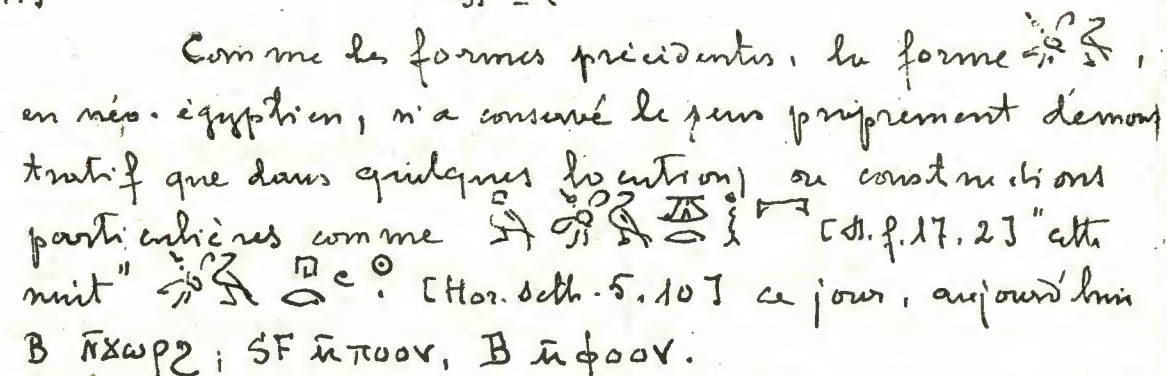 Comme les formes précédentes, la forme 𓅯𓄿,
en néo-égyptien, n'a conservé le sens proprement démons
tratif que dans quelques locutions ou constructions
particulières comme [d.f.17.2] "cette
nuit" 𓅯𓄿 𓉔𓂋𓏲𓇳 [Hor. Seth. 5,10] ce jour, aujourd'hui
B ⲛ̄ϫⲱⲣϩ; SF ⲙ̄ⲡⲟⲟⲩ, B ⲙ̄ⲫⲟⲟⲩ.